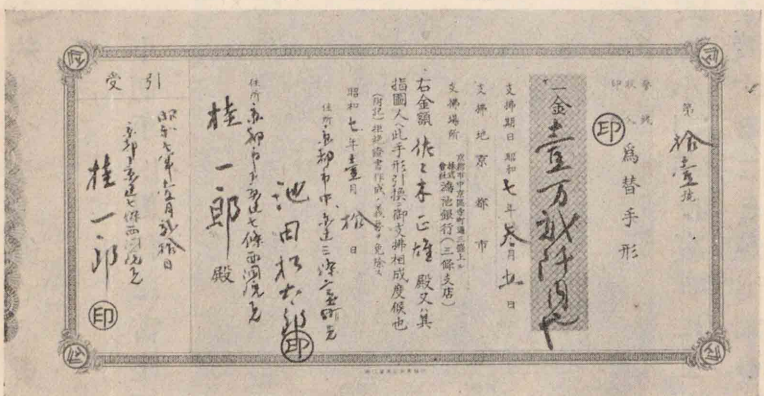 第拾壹號
登
収入
印
印
爲替手形
一金壹万貳阡円也
支拂期日 昭和七年參月 日
支拂地 京都市
支拂場所 京都市中京區寺町通三條上ル
株式會社鴻池銀行(三條支店)
右金額佐々木正雄殿又ハ其
指圖人ヘ此手形引換ニ御支拂相成度候也
(附記)拒絶證書作成ノ義務ヲ免除ス
昭和七年壹月拾日
住所 京都市中京區三條
池田松太郎
印
住所 京都市下京區七條西洞院
桂一郎殿
引受
昭和七年壹月貳拾日
京都市下京區七條西洞院
桂一郎
印